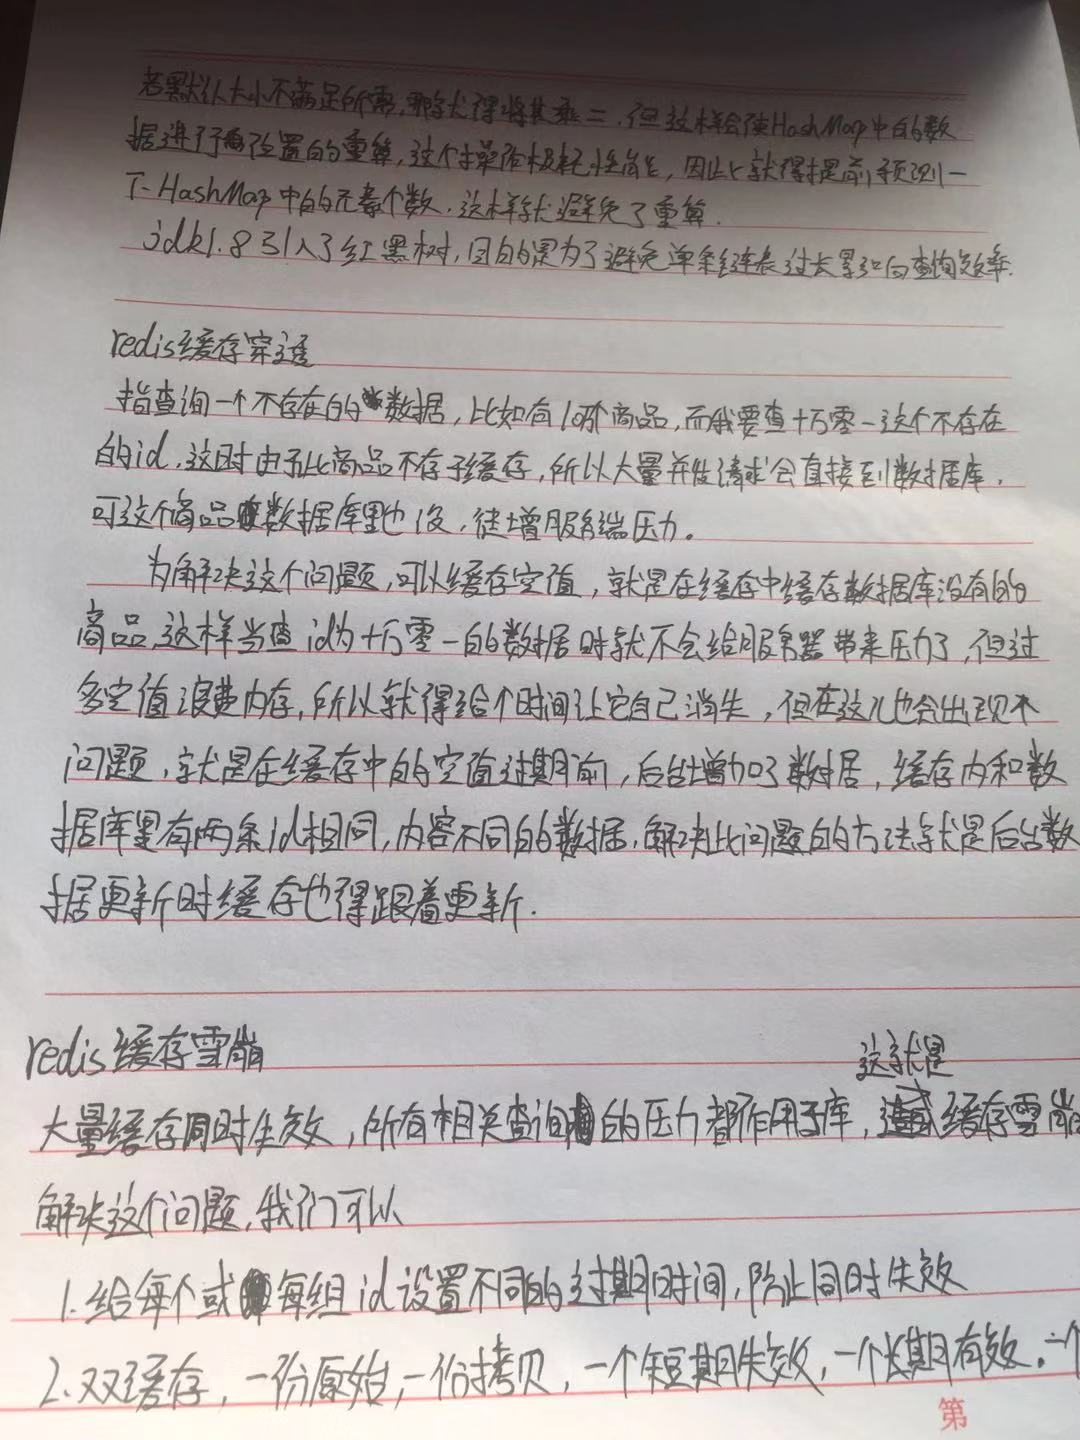 若默认大小不满足所需，那就得将其乘二，但这样会使HashMap中的数
据进行位置的重算，这个操作极耗性能，因此就得提前预测一
下HashMap中的元素个数，这样就避免了重算．
jdk1.8引入了红黑树，目的是为了避免单条链表过长影响查询效率．
redis缓存穿透
指查询一个不存在的数据，比如有10万个商品，而我要查十万零一这个不存在
的id，这时由于此商品不存于缓存，所以大量并发请求会直接到数据库，
可这个商品数据库里也没，徒增服务端压力。
为解决这个问题，可以缓存空值，就是在缓存中缓存数据库没有的
商品，这样当查id为十万零一的数据时就不会给服务器带来压力了，但过
多空值浪费内存，所以就得给个时间让它自己消失，但在这儿也会出现个
问题，就是在缓存中的空值过期前，后台增加了数据，缓存内和数
据库里有两条id相同，内容不同的数据，解决此问题的方法就是后台数
据更新时缓存也得跟着更新．
redis缓存雪崩
这就是
大量缓存同时失效，所有相关查询的压力都作用于库，缓存雪崩
解决这个问题，我们可以
1.给每个或每组id设置不同的过期时间，防止同时失效
2.双缓存，一份原始，一份拷贝，一个短期失效，一个长期有效．一个
第